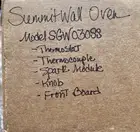 Summit Wall Oven
Model SGWO3088
- Thermostat
- Thermocouple
- Spark Module
- Knob
- Front Board